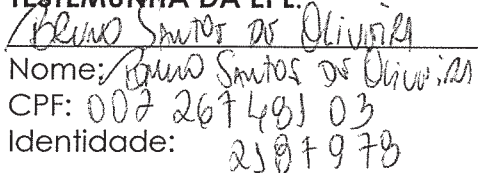 TESTEMUNHA DA EPE:
Bruno Santos de Oliveira
Nome: Bruno Santos de Oliveira
CPF: 007 267 481 03
Identidade: 2187978